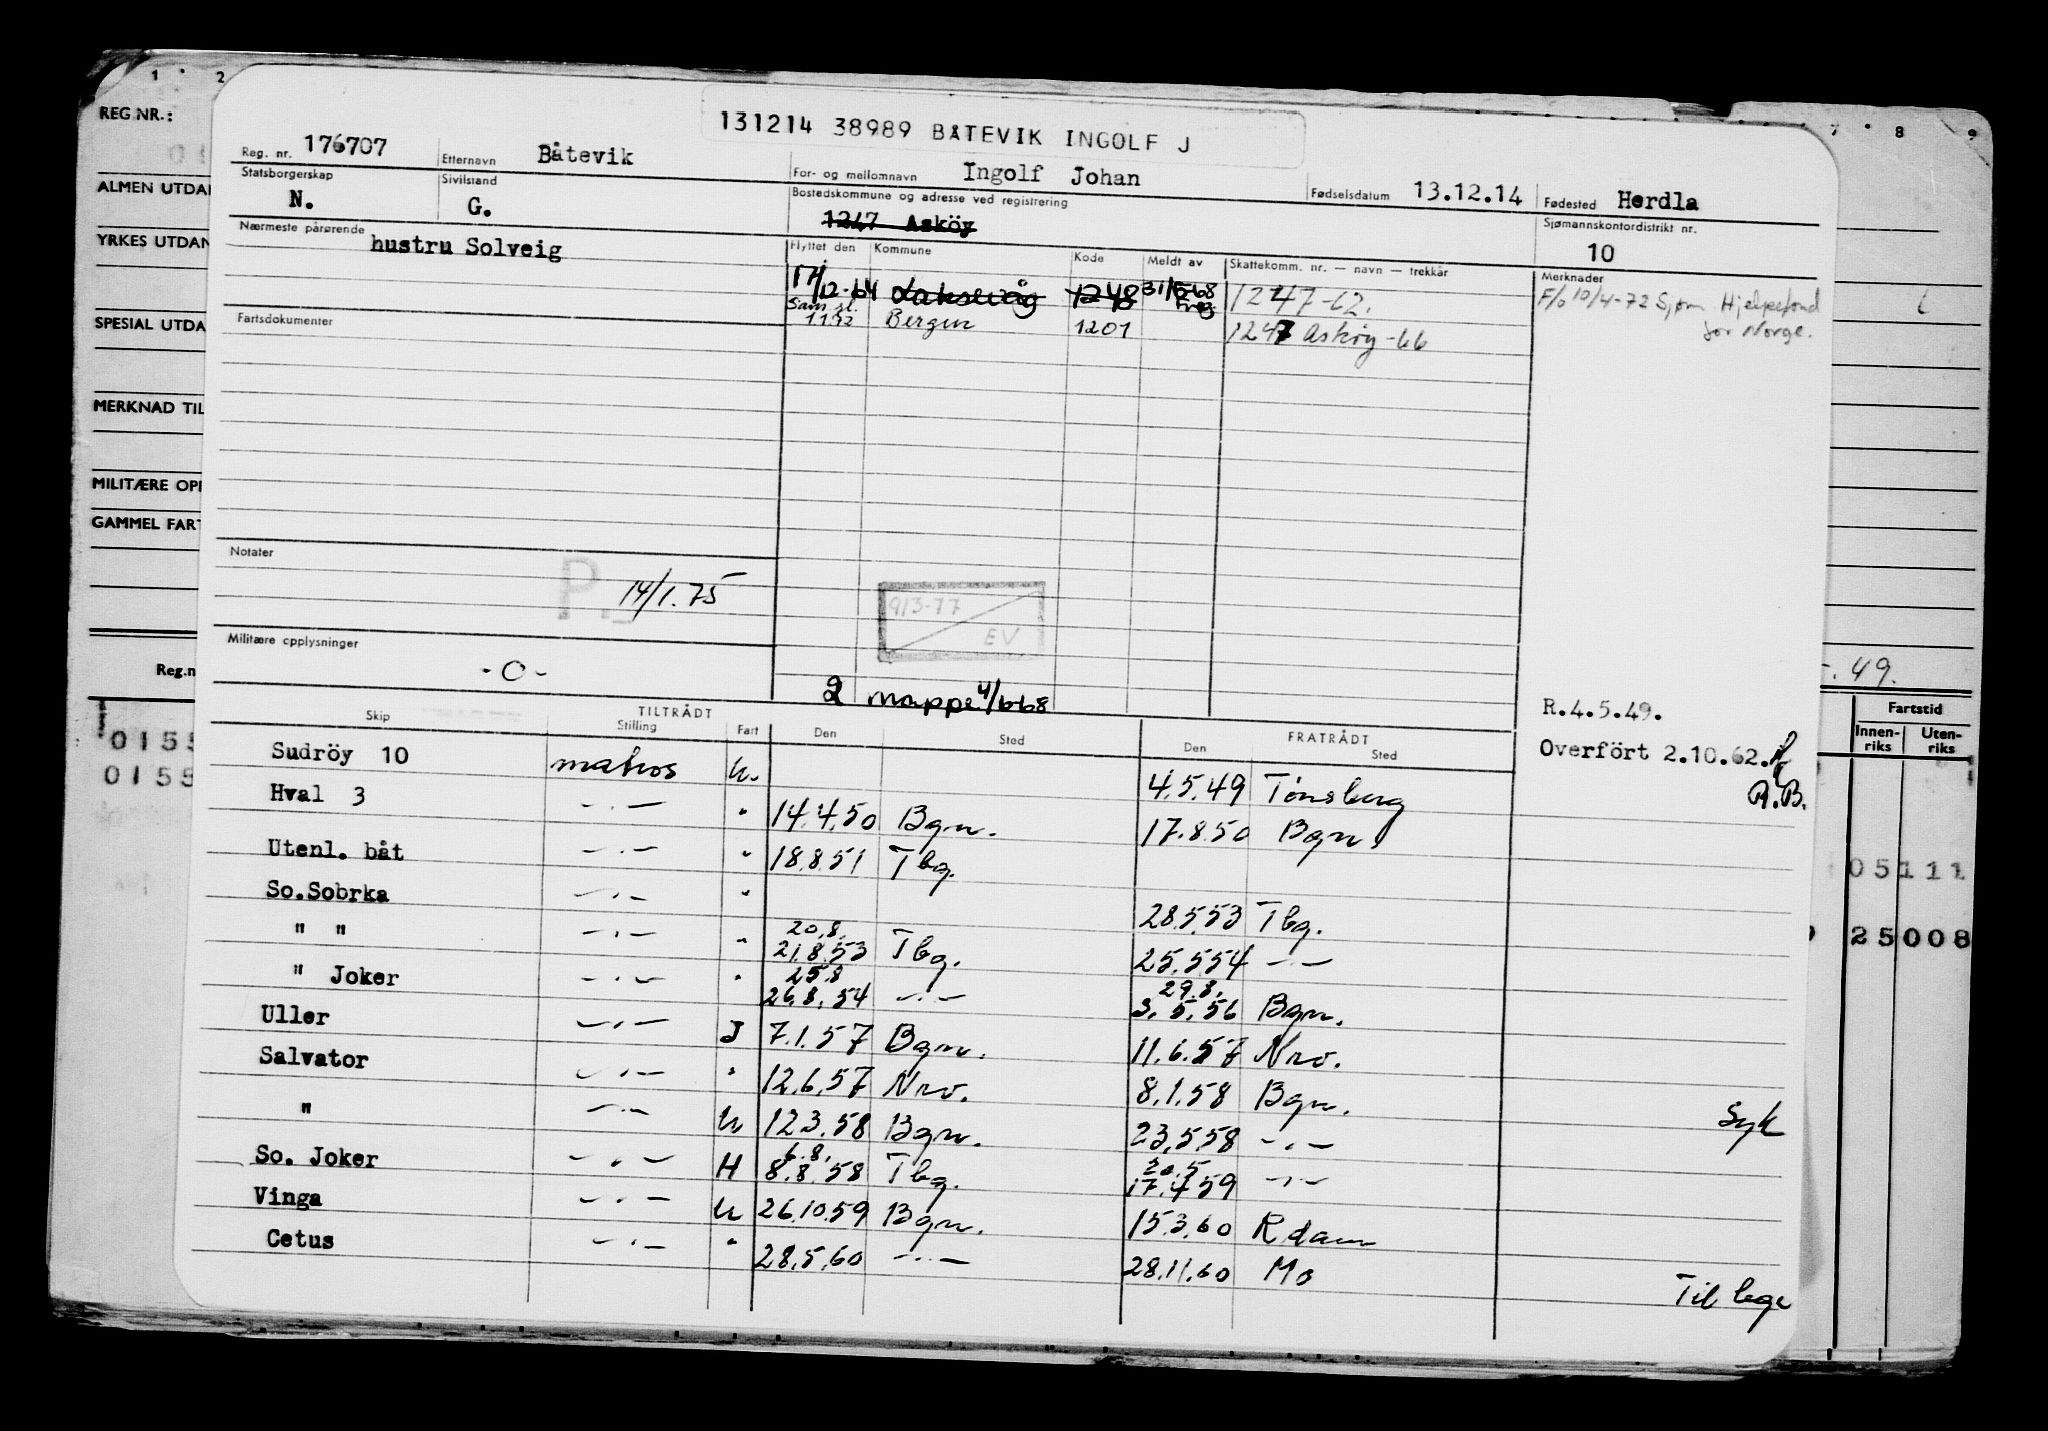 1 2
REG.NR.:
131214 38989 BÅTEVIK INGOLF J
7 8 9
Reg. nr. 176707 Etternavn Båtevik For- og mellomnavn Ingolf Johan Fødselsdatum 13.12.14 Fødested Herdla
ALMEN UTDA
Statsborgerskap N. Sivilstand G. Bostedskommune og adresse ved registrering 1247 Asköy Sjømannskontordistrikt nr. 10
YRKES UTDAN
Nærmeste pårørende hustru Solveig Flyttet den Kommune Kode Meldt av Skattekomm. nr. — navn — trekkår Merknader
17/12-64 Laksevåg 1248 31/5-68 Freg 1247-62. F/o 10/4-72 Sjøm. Hjelpefond
for Norge.
SPESIAL UTDA
Fartsdokumenter Sam.sl. 1.1.72 Bergen 1201 1247 Askøy -66
MERKNAD TIL
MILITÆRE OPP
GAMMEL FART
Notater P. 14/1.75
913-77 EV
Militære opplysninger -0-
Reg.n
-. 49.
2 mappe 4/668
R.4.5.49.
Overfört 2.10.62.
R.B.
Fartstid
Innen-riks Uten-riks
Skip TILTRÅDT Stilling Fart Den Sted FRATRÅDT Den Sted
0155
0155
Sudröy 10 matros U. 4.5.49 Tönsberg
Hval 3 -.- " 14.4.50 Bgn. 17.8.50 Bgn.
Utenl. båt -.- " 18.8.51 Tbg.
05111
So.Sobrka -.- " 28.5.53 Tbg.
25008
" " -.- " 20.8. 21.8.53 Tbg. 25.5.54 -.-
" Joker -.- " 25.8 26.8.54 -.- 29.8. 3.5.56 Bgn.
Uller -.- J 7.1.57 Bgn. 11.6.57 Nrv.
Salvator -.- " 12.6.57 Nrv. 8.1.58 Bgn. Syk
" -.- U 12.3.58 Bgn. 23.5.58 -.-
So. Joker -.- H 6.8. 8.8.58 Tbg. 20.5 17.4.59 -.-
Vinga -.- U 26.10.59 Bgn. 15.3.60 Rdam
Cetus -.- " 28.5.60 -.- 28.11.60 Mo Til lege